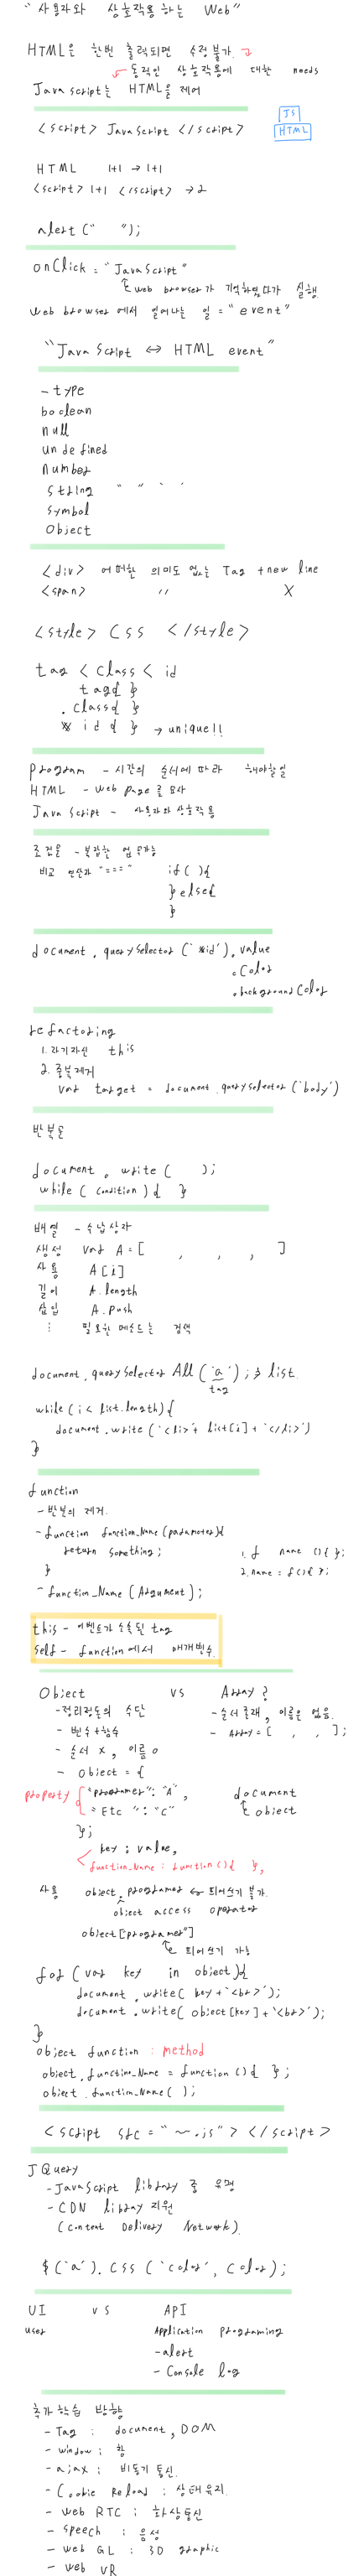 "사용자와 상호작용하는 Web"
HTML은 한번 출력되면 수정불가.
동적인 상호작용에 대한 needs
Java script는 HTML을 제어
<script> JavaScript </script>
JS
HTML
HTML 1+1 → 1+1
<script> 1+1 </script> → 2
alert(" ");
onClick = "JavaScript"
web browser가 기억하였다가 실행
web browser에서 일어나는 일 = "event"
"Java Script ↔ HTML event"
- type
boolean
null
undefined
number
string " " ' '
symbol
Object
<div> 어떠한 의미도 없는 Tag + new line
<span> " X
<style> CSS </style>
tag < class < id
tag{ }
.class{ }
* id { } → unique!!
program - 시간의 순서에 따라 해야할일
HTML - web page를 묘사
Java Script - 사용자와 상호작용
조건문 - 복잡한 업무가능
비교 연산자 "===" if( ){
} else{
}
document.querySelector('*id').value
.Color
.background Color
refactoring
1. 자기자신 this
2. 중복제거
var target = document.querySelector('body')
반복문
document.write( );
while ( condition ) { }
배열 - 수납상자
생성 var A = [ , , , ]
사용 A[i]
길이 A.length
삽입 A.push
⋮ 필요한 메소드는 검색
document.querySelector All ('a'); → list.
tag
while(i < list.length){
document.write('<li>' + list[i] + '</li>')
}
function
- 반복의 제거.
- function function_Name(parameter){
return something;
}
1. f name () { };
2. name = f() { };
- function_Name(Argument);
this - 이벤트가 소속된 tag
self - function에서 매개변수.
Object vs Array?
- 정리정돈의 수단
- 순서존재, 이름은 없음.
- 변수+함수
- Array = [ , , ];
- 순서 x, 이름 o
- object = {
property "programer": "A",
"Etc": "C"
};
document
object
key : value,
function_Name : function(){ },
사용 object.programer ← 띄어쓰기 불가.
object access operator
object["programer"]
띄어쓰기 가능
for (var key in object){
document.write( key + '<br>');
document.write( object[key] + '<br>');
}
object function : method
object.function_Name = function(){ };
object.function_Name( );
<script src = "~.js"> </script>
JQuery
- JavaScript library 중 유명
- CDN library 지원
(Content Delivery Network).
$('a').css('color', color);
UI vs API
user Application programing
- alert
- Console log
추가 학습 방향
- Tag : document, DOM
- window : 창
- ajax : 비동기 통신.
- Cookie Reload : 상태유지.
- web RTC : 화상통신
- speech : 음성
- web GL : 3D graphic
- web VR